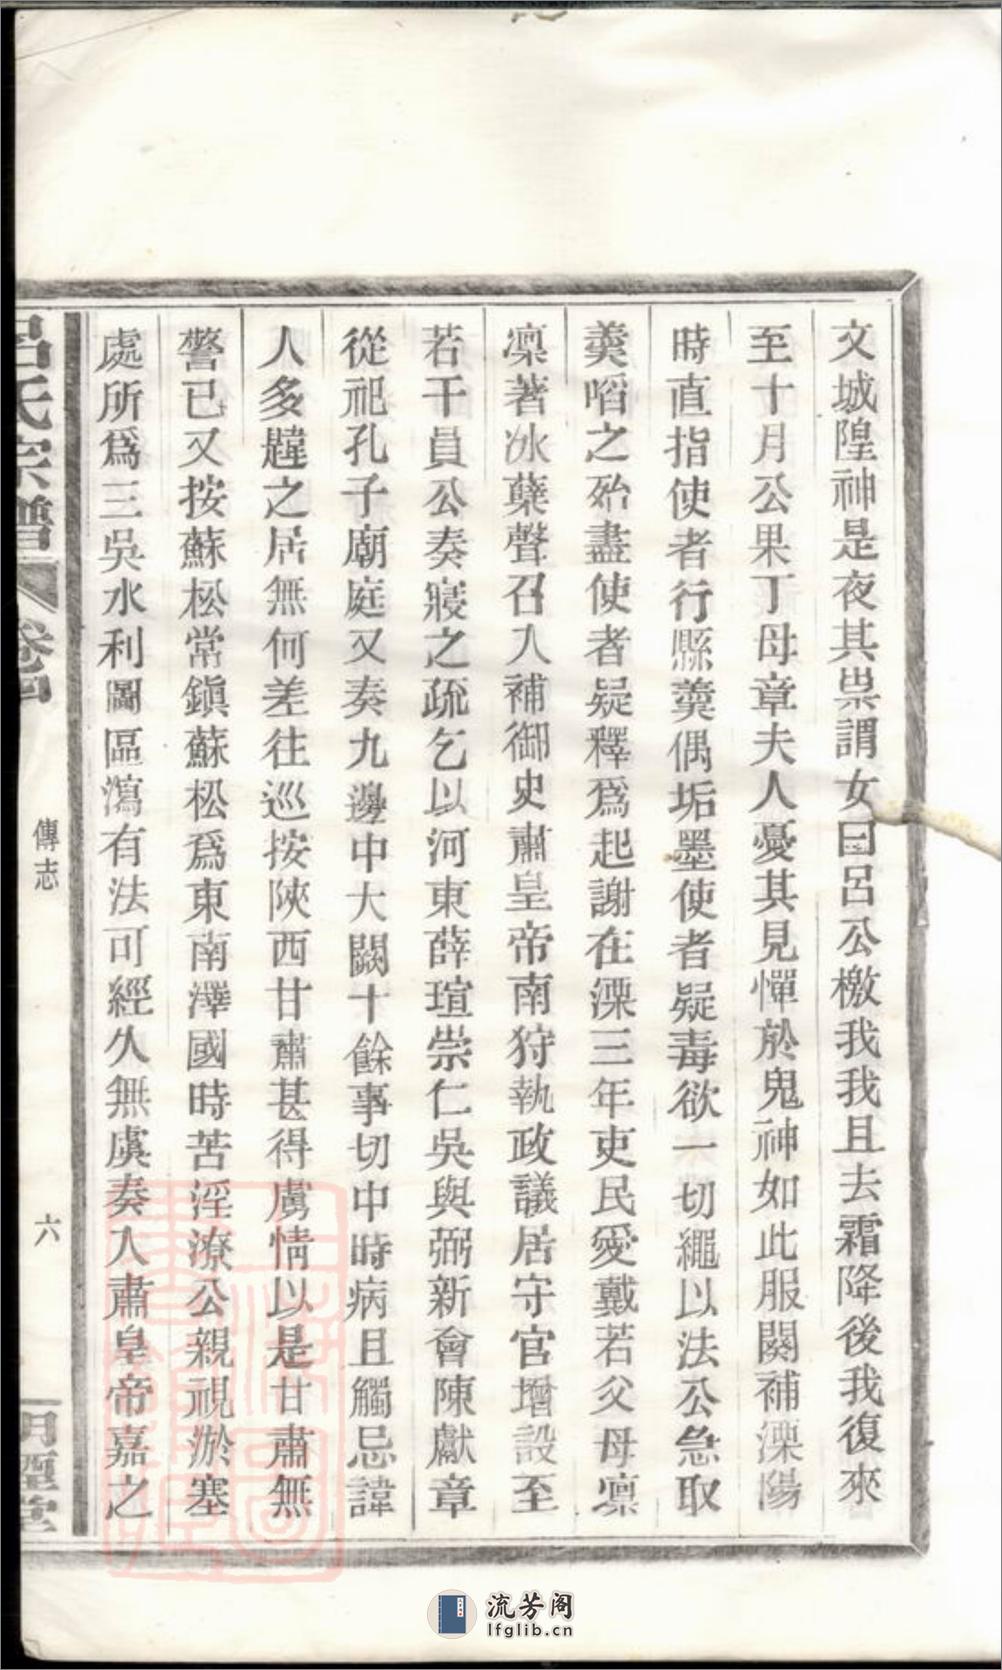 文城隍神是夜其祟謂女曰呂公檄我我且去霜降後我復來
至十月公果丁母章夫人憂其見憚於鬼神如此服闋補溧陽
時直指使者行縣羹偶垢墨使者疑毒欲一切繩以法公急取
羹啗之殆盡使者疑釋爲起謝在溧三年吏民愛戴若父母凜
凜著冰蘗聲召入補御史肅皇帝南狩執政議居守官增設至
若干員公奏寢之疏乞以河東薛瑄崇仁吳與弼新會陳獻章
從祀孔子廟庭又奏九邊中大闕十餘事切中時病且觸忌諱
人多韙之居無何差往巡按陝西甘肅甚得虜情以是甘肅無
警已又按蘇松常鎮蘇松爲東南澤國時苦淫潦公親視淤塞
處所爲三吳水利圖區瀉有法可經久無虞奏入肅皇帝嘉之
呂氏宗譜 卷四 傳志 六 明
流芳阁
lfglib.cn